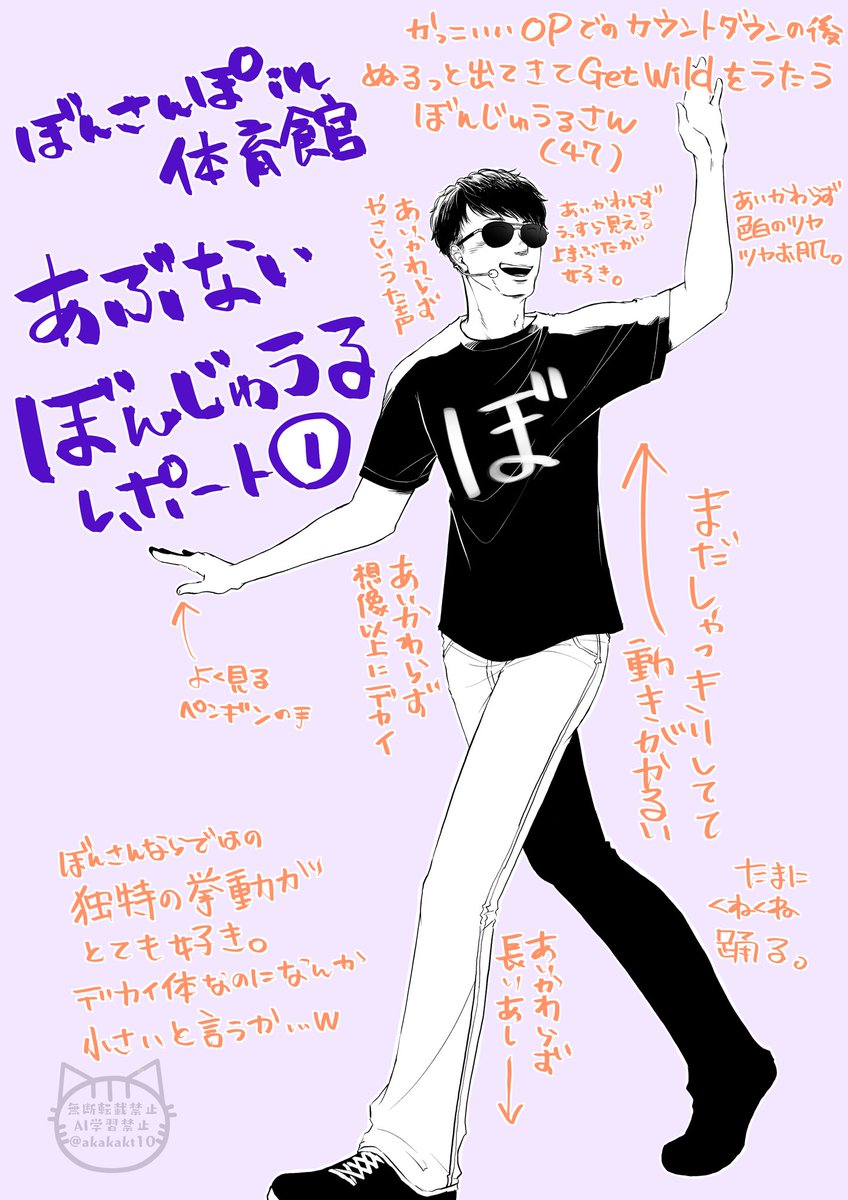 ぼんさんぽin
体育館
あぶない
ぼんじゅうる
レポート①
かっこいいOPでのカウントダウンの後
ぬるっと出てきてGet Wildをうたう
ぼんじゅうるさん
(47)
あいかわらず
やさしいうた声
あいかわらず
うっすら見える
上まぶたが
好き。
あいかわらず
色白のツヤ
ツヤお肌。
ぼ
よく見る
ペンギンの手
あいかわらず
想像以上にデカイ
まだしゃっきりしてて
動きがかるい
たまに
くねくね
踊る。
あいかわらず
長いあし
ぼんさんならではの
独特の挙動が
とても好き。
デカイ体なのになんか
小さいと言うか…w
無断転載禁止
AI学習禁止
@akakakt10